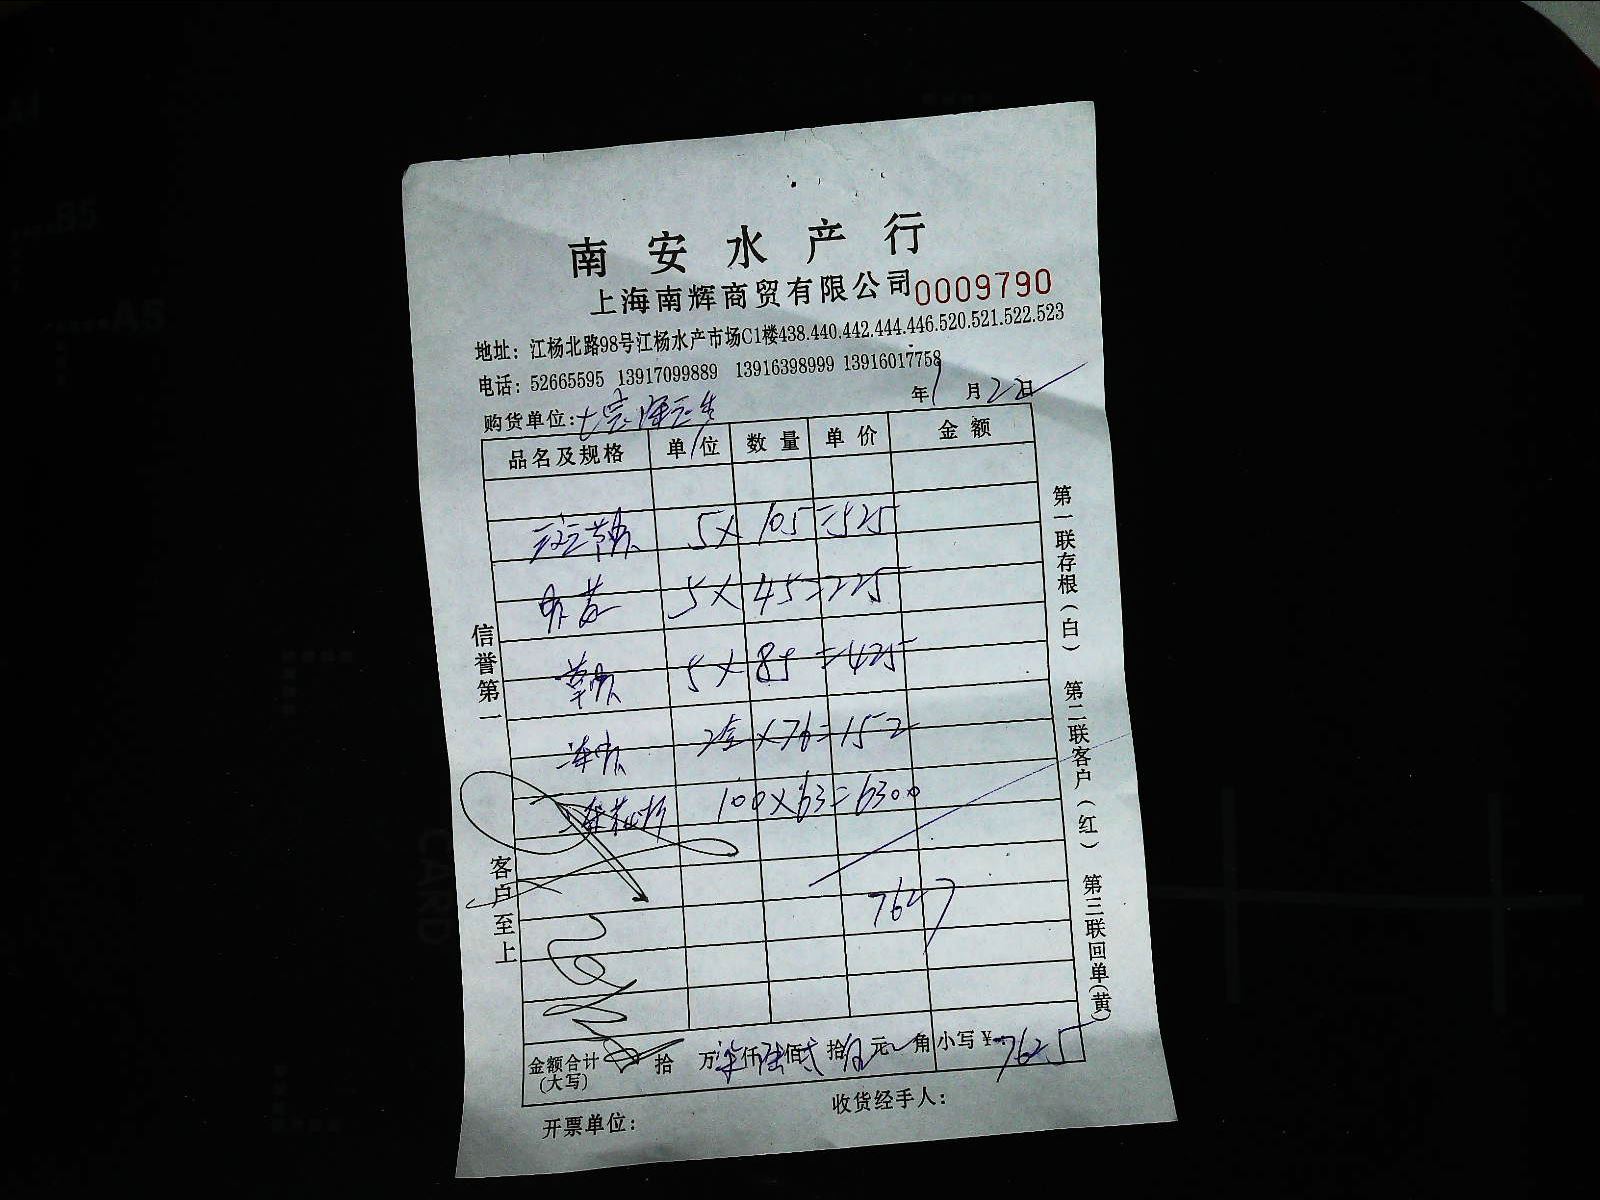 南安水产行
上海南辉商贸有限公司 0009790
地址：江杨北路98号江杨水产市场C1楼438.440.442.444.446.520.521.522.523
电话：52665595 13917099889 13916398999 13916017758
年1月22日
购货单位：
品名及规格 单位 数量 单价 金额
5×105=525
5×45=225
5×85=425
2×76=152
100×63=6300
7627
金额合计(大写) 拾 万柒仟陆佰贰拾伍元 角 小写¥7625
开票单位： 收货经手人：
信誉第一 客户至上
第一联存根(白) 第二联客户(红) 第三联回单(黄)